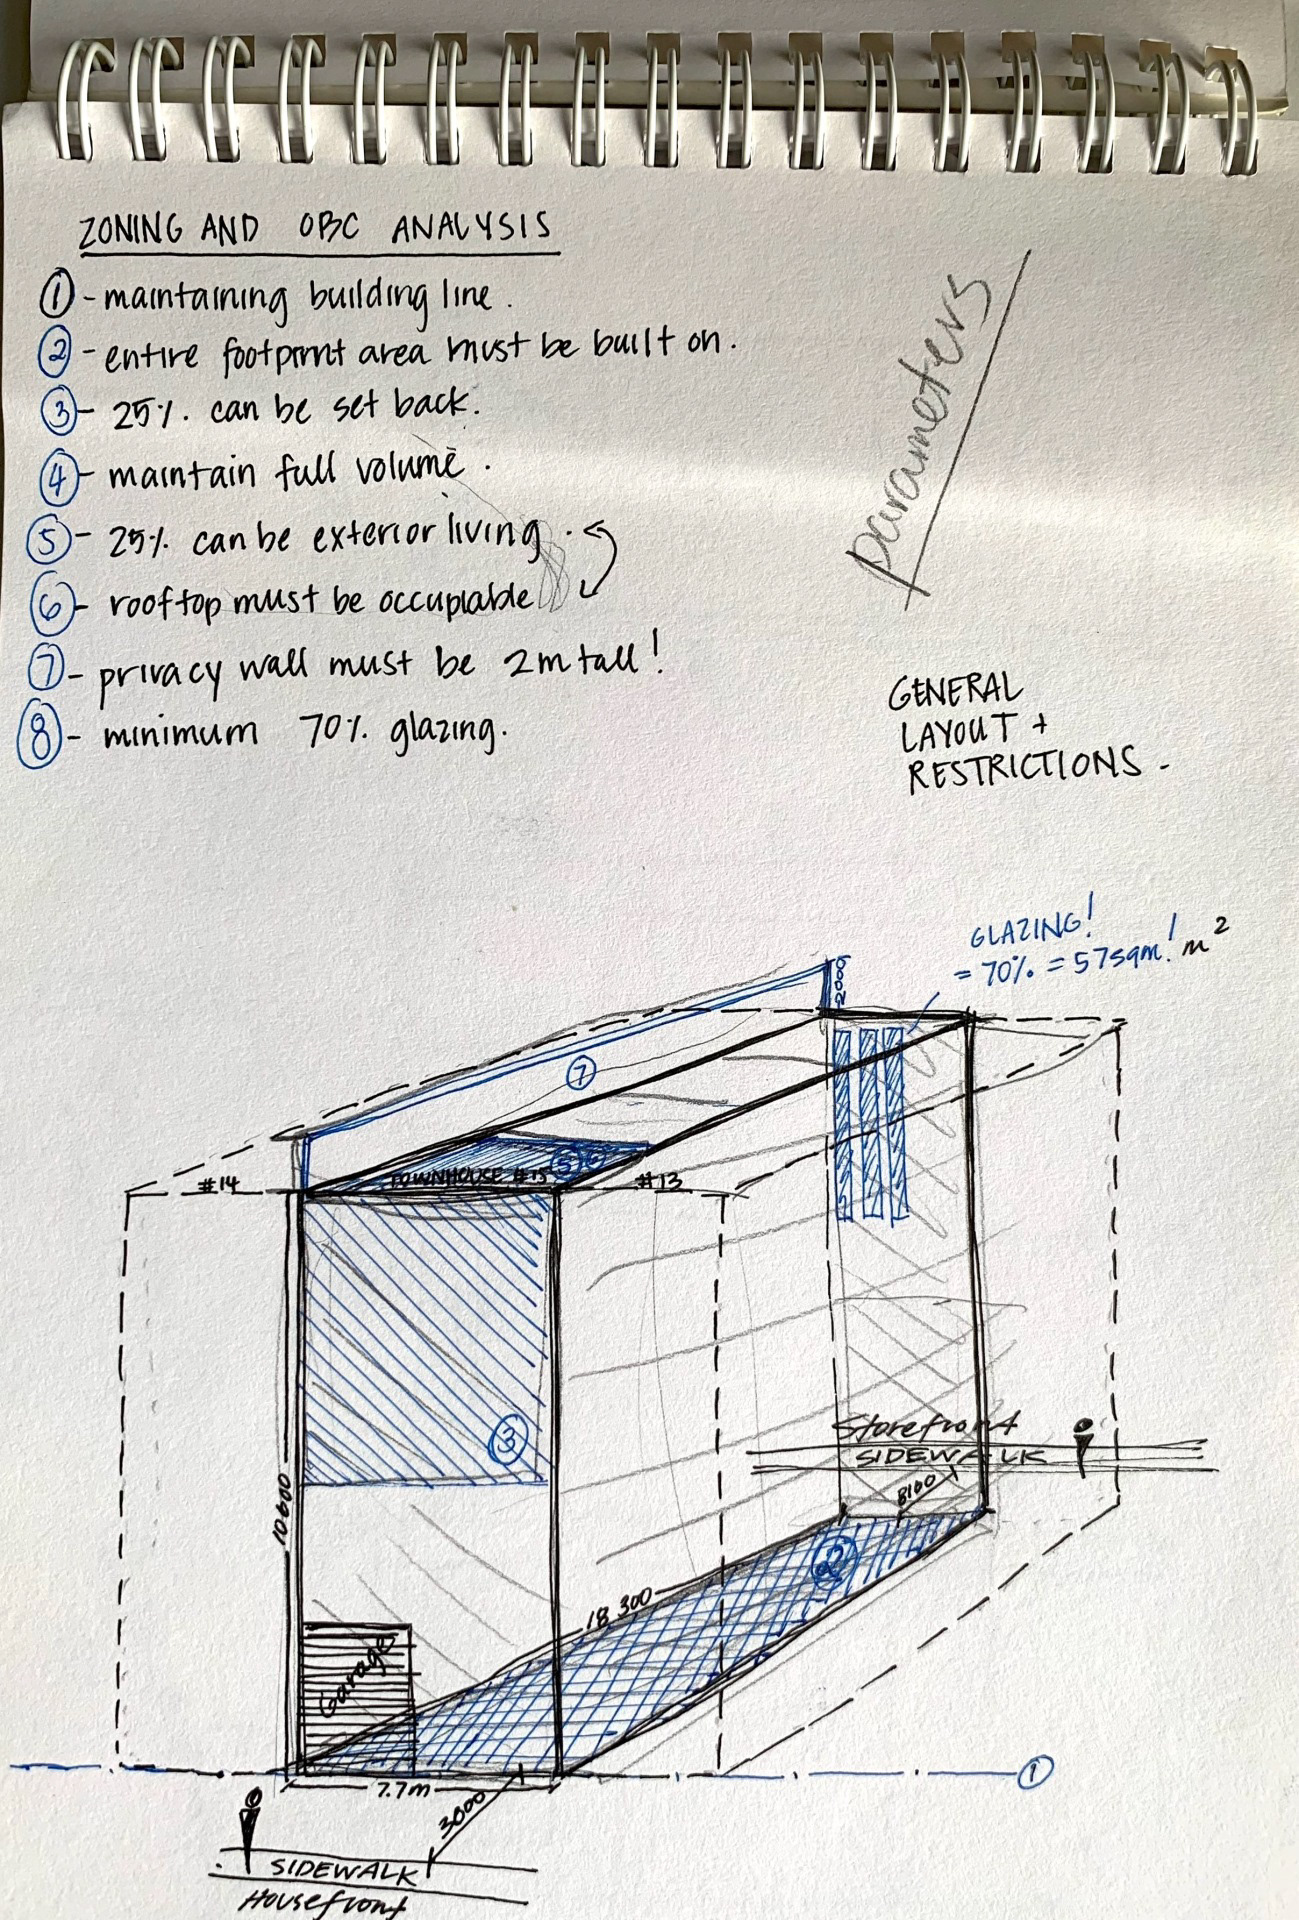 ZONING AND OBC ANALYSIS
① - maintaining building line.
② - entire footprint area must be built on.
③ - 25% can be set back.
④ - maintain full volume.
⑤ - 25% can be exterior living.
⑥ - rooftop must be occupiable
⑦ - privacy wall must be 2m tall!
⑧ - minimum 70% glazing.
parameters
GENERAL
LAYOUT +
RESTRICTIONS -
GLAZING!
= 70% = 57sqm! m²
2000
⑦
⑤ ⑥
#14
TOWNHOUSE #15
#13
③
10600
Storefront
SIDEWALK
8100
②
18 300
Garage
①
7.7m
3000
SIDEWALK
Housefront